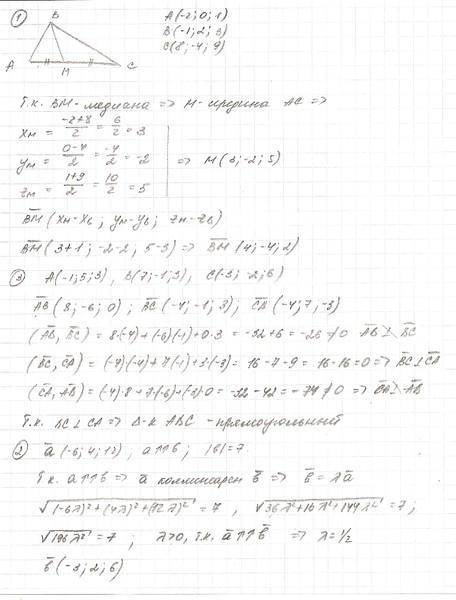 ① B
A(-2; 0; 1)
B(-1; 2; 3)
C(8; -4; 9)
A M C
Т.к. BM - медиана => M - середина AC =>
x_M = (-2+8)/2 = 6/2 = 3
y_M = (0-4)/2 = -4/2 = -2 => M(3; -2; 5)
z_M = (1+9)/2 = 10/2 = 5
BM (x_M - x_B; y_M - y_B; z_M - z_B)
BM (3+1; -2-2, 5-3) => BM (4; -4; 2)
③ A(-1; 5; 3), B(7; -1; 3), C(3; -2; 6)
AB (8; -6; 0); BC (-4; -1; 3); CA (-4; 7, -3)
(AB, BC) = 8·(-4)+(-6)(-1)+0·3 = -32+6 = -26 ≠ 0 AB ⊥ BC
(BC, CA) = (-4)(-4)+7(-1)+3(-3) = 16-7-9 = 16-16=0 => BC ⊥ CA
(CA, AB) = (-4)·8+7(-6)+(-3)·0 = -32-42 = -74 ≠ 0 => CA ⊥ AB
Т.к. BC ⊥ CA => Δ-к ABC - прямоугольный
② a (-6; 4; 12), a↑↑b; |b|=7
Т.к. a↑↑b => a коллинеарен b => b = λa
√((-6λ)²+(4λ)²+(12λ)²) = 7, √(36λ²+16λ²+144λ²) = 7;
√(196λ²) = 7; λ>0, т.к. a↑↑b => λ=1/2
b (-3; 2; 6)